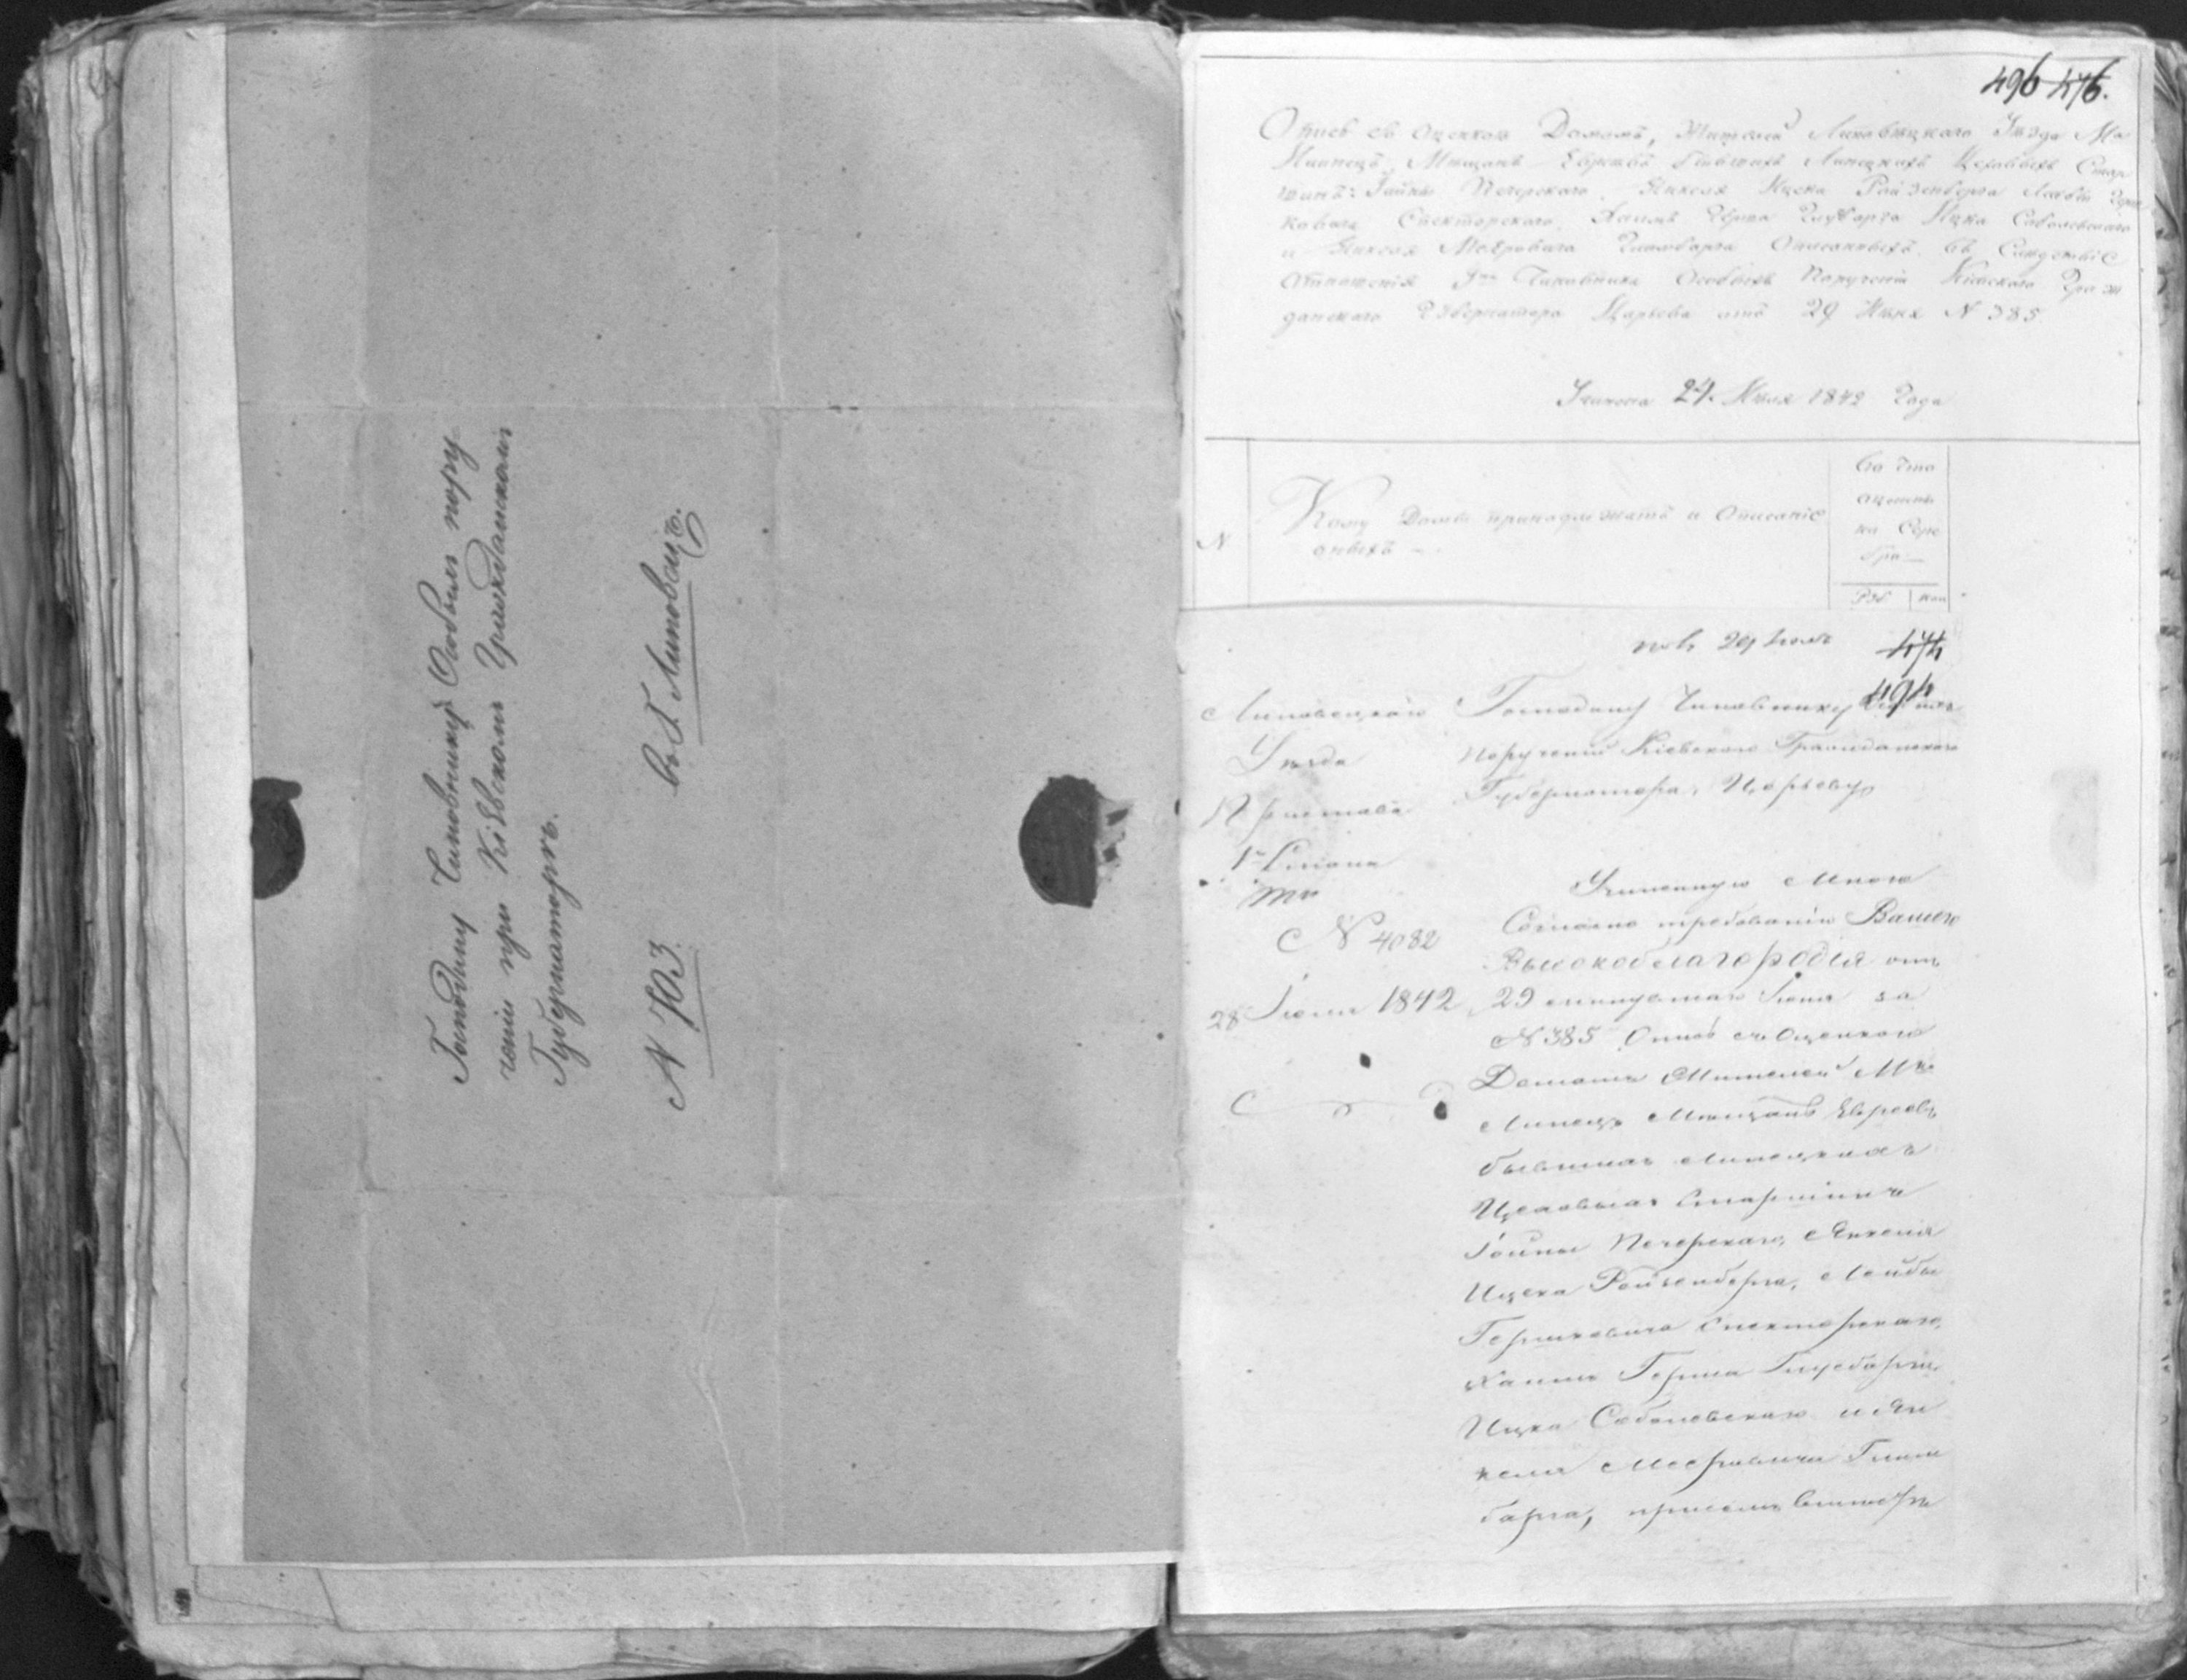 Господину Чиновнику Особыхъ пору
ченій при Кіевскомъ Гражданскомъ
Губернаторѣ.
въ Г. Липовацъ.
N 703.
496 476.
Опись съ Оценкою Домамъ, Жителей Липовѣцкаго Уѣзда Мѣ
Липнецъ Мѣщанъ Евреевъ бывшихъ Липецкихъ Цеховыхъ Стар
шинъ: Гойны Печерскаго, Янкеля Ицека Ройзенберга Лейбы Герш
ковича Спекторскаго, Хаима Герша Глузбарга Ицка Соболевскаго
и Янкеля Меэровича Гинзбарга Описанныхъ въ Слѣдствіе
Отношенія Гна Чиновника Особыхъ Порученій Кіевскаго Граж
данскаго Губернатора Царьова отъ 29 Июня N 385.
Учинена 24. Июля 1842 Года
N
Кому Домы принадлежатъ и Описаніе
оныхъ
Во Что
оценены
на Сере
бро
Руб коп
пол 29 Іюля
474
494
Липовецкаго
Уѣзда
Пристава
1го Стана
N 4082
28 Іюля 1842
Господину Чиновнику Особыхъ
Порученій Кіевскаго Гражданскаго
Губернатора, Царьову
Учиненную Мною
Согласно требованію Вашего
Высокоблагородія отъ
29 минувшаго Іюня за
N 385 Опись съ Оценкою
Домамъ Жителей Мка
Липецъ Мѣщанъ Евреевъ
бывшихъ Липецкихъ
Цеховыхъ Старшинъ
Гойны Печерскаго, Янкеля
Ицека Ройзенберга, Лейбы
Гершковича Спекторскаго,
Хаима Герша Глузбарга,
Ицка Соболевскаго и Ян
келя Меэровича Гинз
барга, присемъ